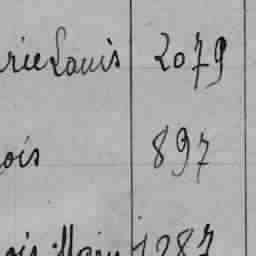 rie Louis 2079
ois 897
ois Marie 1287